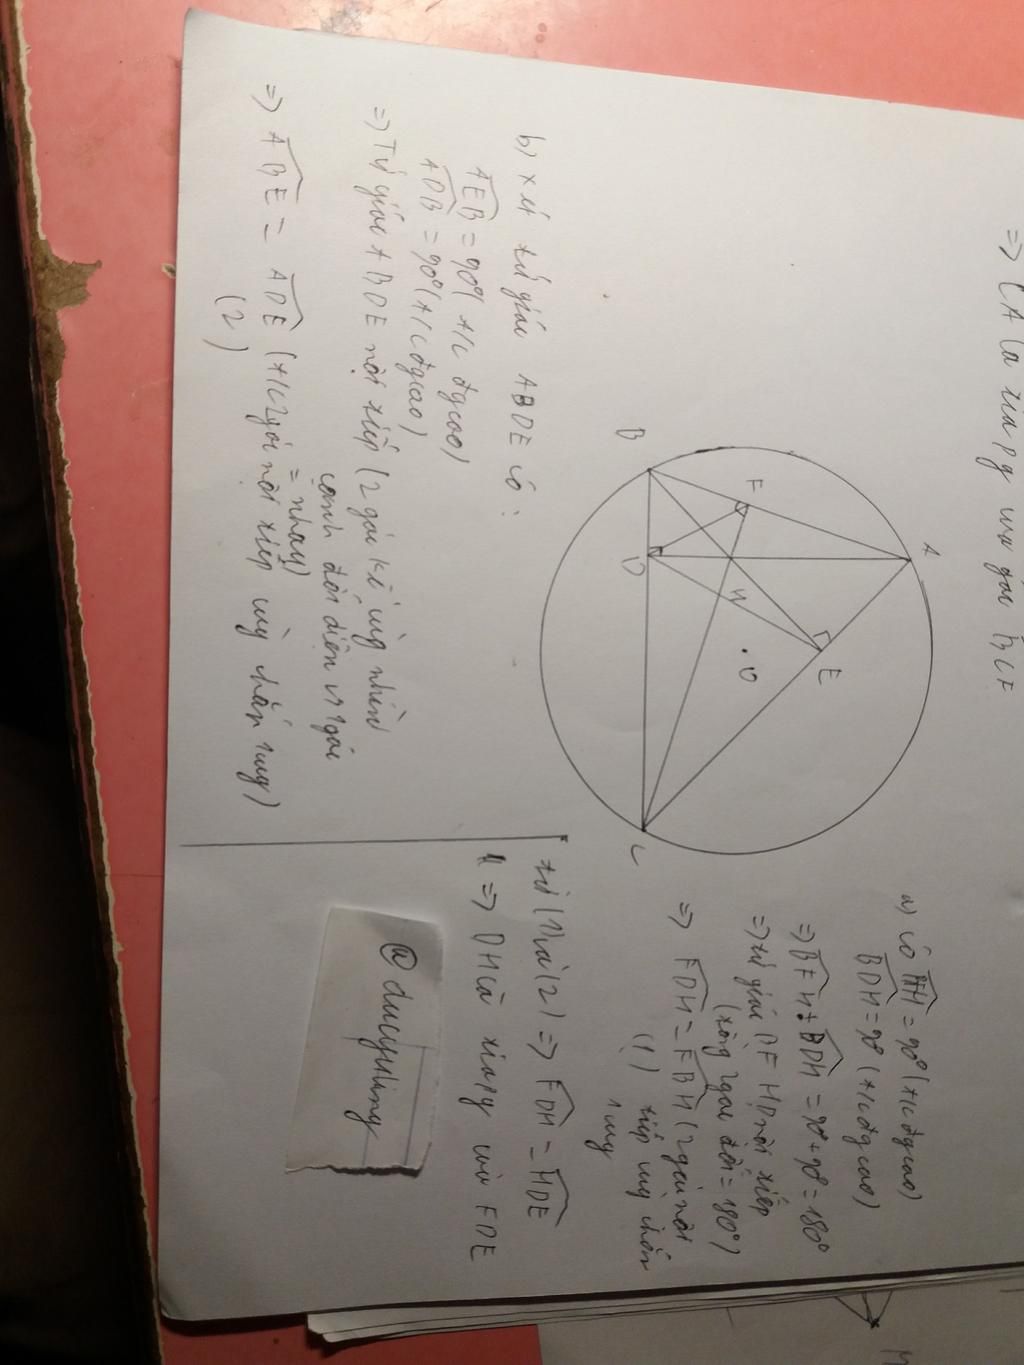 => CA là tia pg của góc BCF
A
F
B
D
H
O
E
C
a) Có BFH = 90° (t/c đg cao)
BDH = 90° (t/c đg cao)
=> BFH + BDH = 90 + 90 = 180°
=> tứ giác BFHD nội tiếp
(tổng 2 góc đối = 180°)
=> FDH = FBH (2 góc nội
(1) tiếp cùng chắn
1 cung
b) xét tứ giác ABDE có:
AEB = 90° (t/c đg cao)
ADB = 90° (t/c đg cao)
=> Tứ giác ABDE nội tiếp (2 góc kề cùng nhìn
cạnh đối diện với góc
= nhau)
=> ABE = ADE (t/c 2 góc nội tiếp cùng chắn 1 cung)
(2)
từ (1) và (2) => FDH = HDE
=> DH là tia pg của FDE
@ducyuting
M